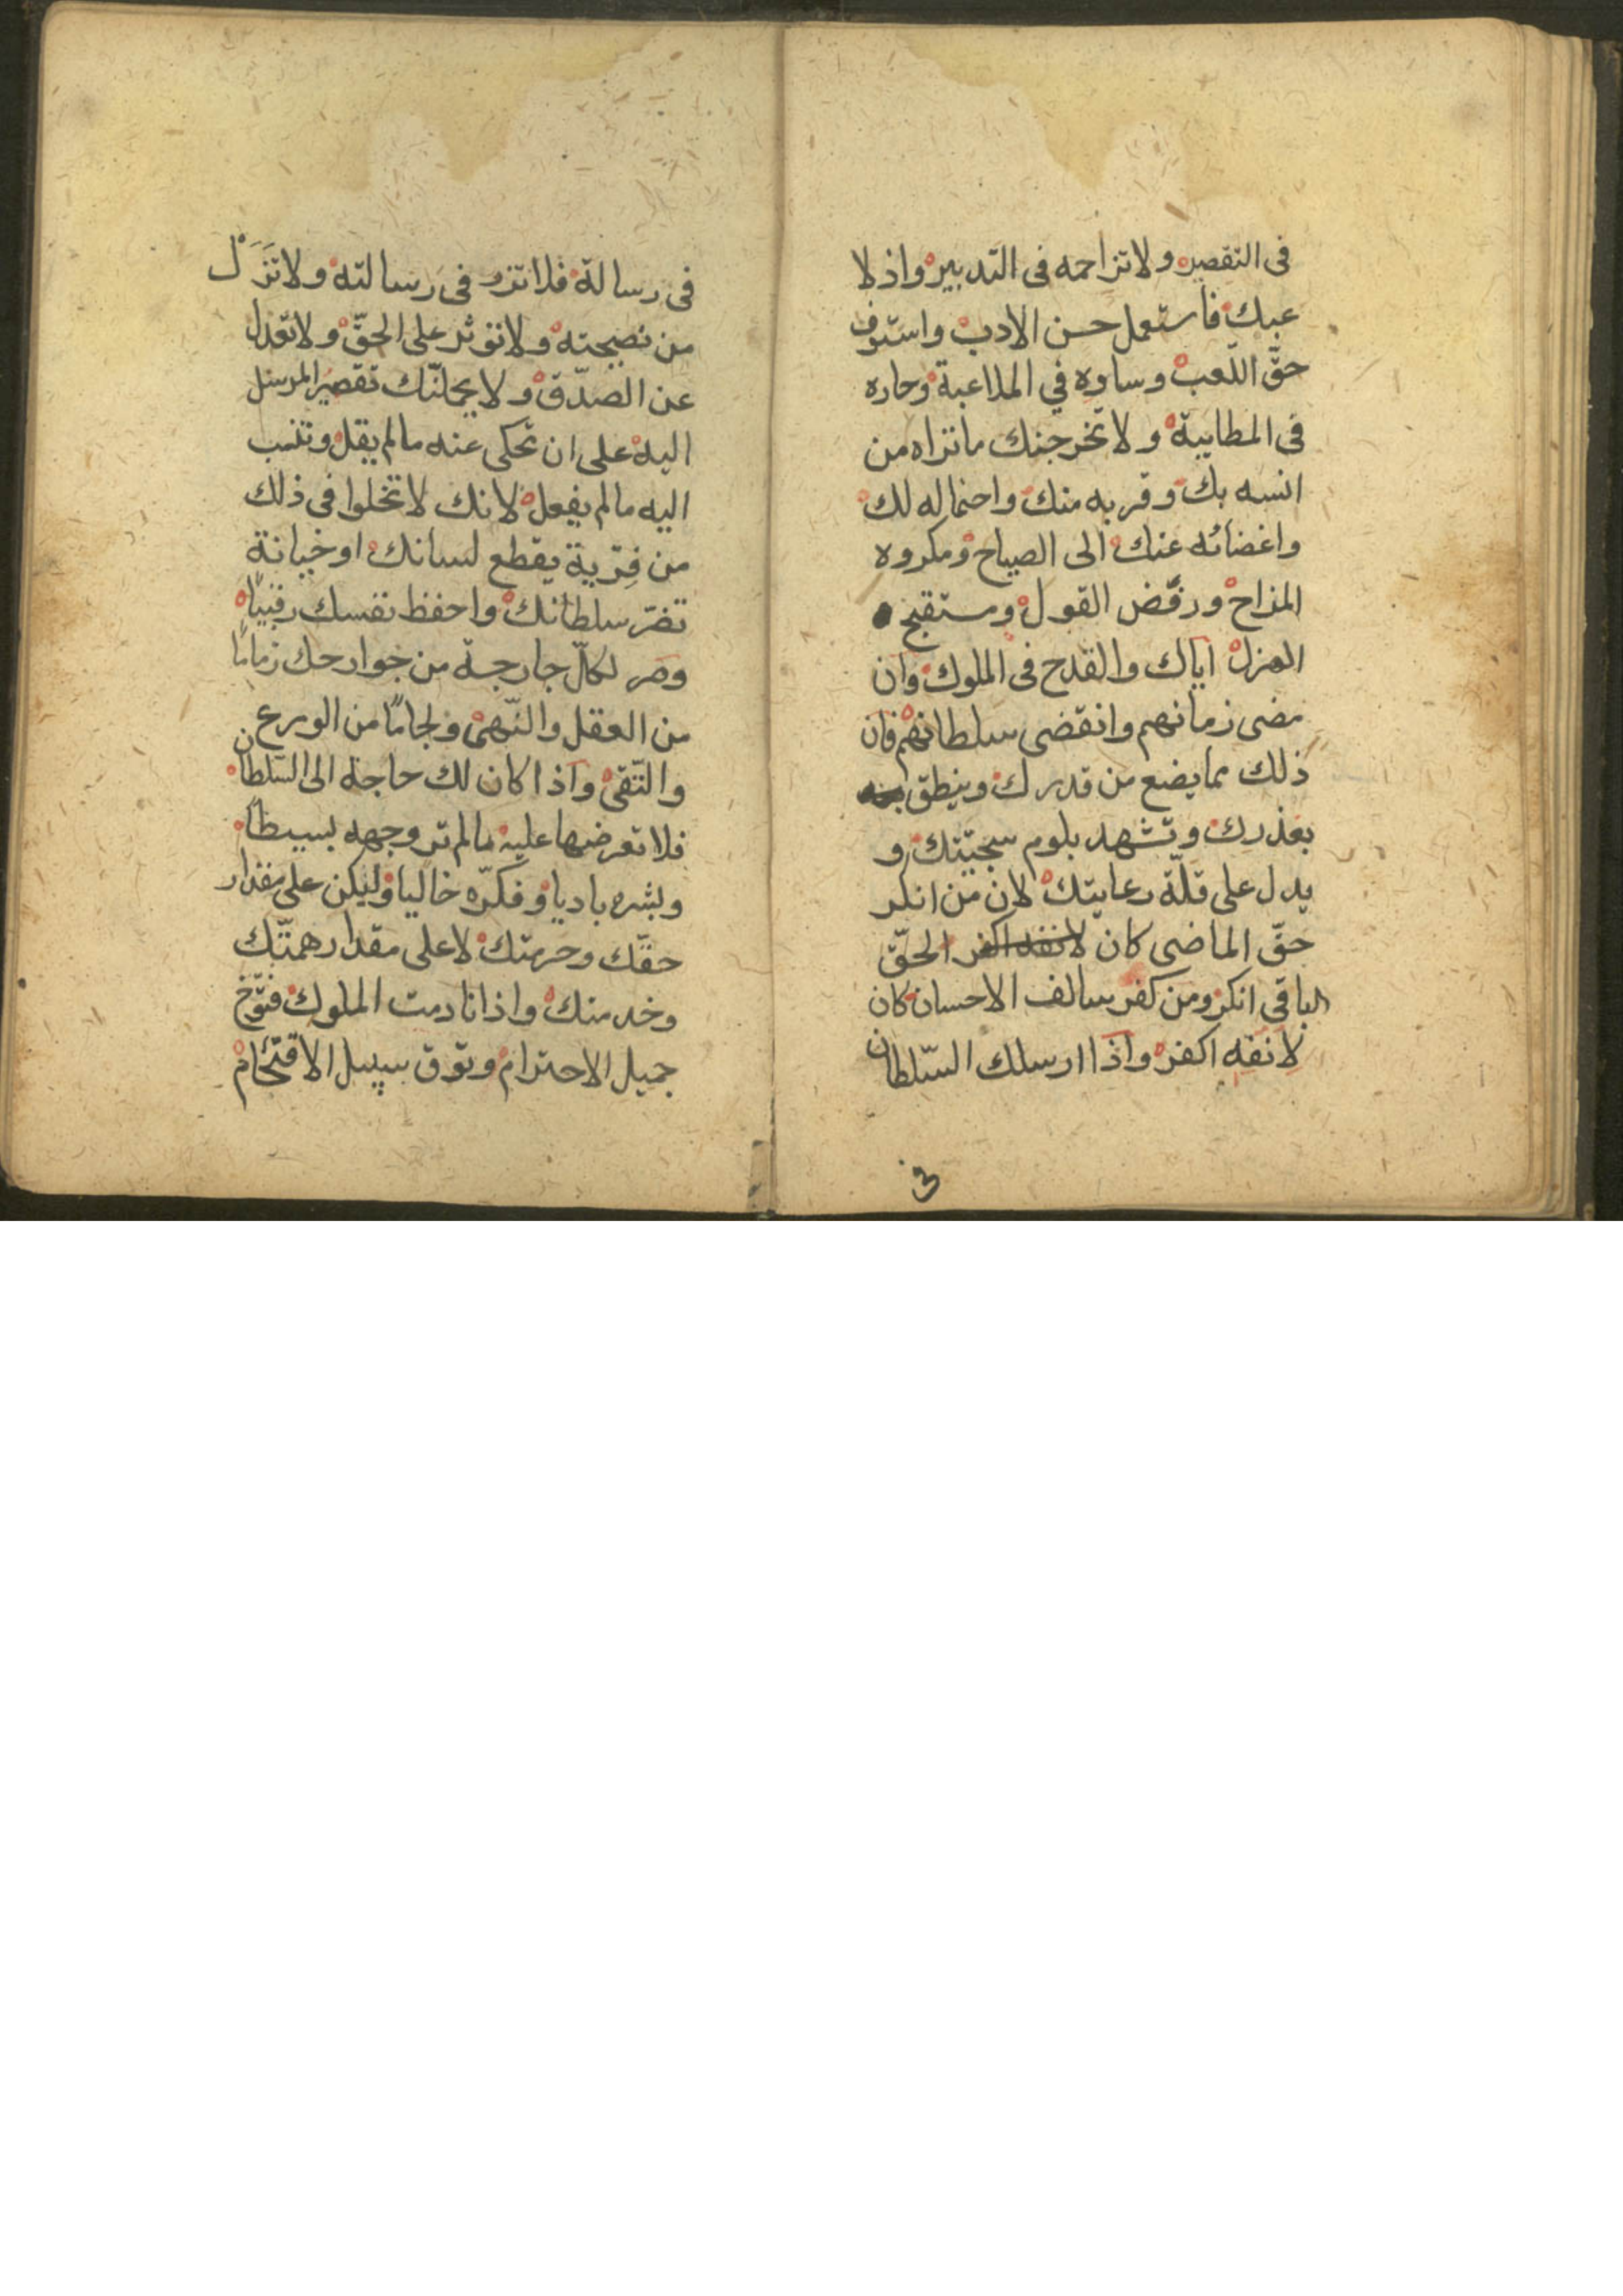 فى التقصير ولا تزاحمه فى التدبير واذ لا
عبك فاستعمل حسن الادب واستوف
حقّ اللّعب وساوه في الملاعبة وحاره
فى المطايبة ولا تخرجنك ما تراه من
انسه بك وقربه منك واحتماله لك
واغضائه عنك الى الصياح ومكروه
المزاح ورفض القول ومستقبح
الهزل اياك والقدح فى الملوك وان
مضى زمانهم وانقضى سلطانهم فان
ذلك مما يضع من قدرك وينطق
بغدرك وتشهد بلوم سجيّتك و
يدل على قلّة رعايتك لان من انكر
حقّ الماضى كان لانفه اكفر الحقّ
الباقى انكر ومن كفر سالف الاحسان كان
لانفه اكفر واذا ارسلك السّلطان
فى
فى رسالة فلا تزد فى رسالته ولا تَزَلْ
من نصيحته ولا تؤثر على الحقّ ولا تعدل
عن الصدّق ولا يحملنّك تقصير المرسل
اليه على ان تحكى عنه مالم يقل وتنسب
اليه مالم يفعل لانك لا تخلوا فى ذلك
من فِرْية يقطع لسانك او خيانة
تضرّ سلطانك واحفظ نفسك رقيبًا
وصر لكلّ جارحة من جوارحك زمامًا
من العقل والنّهى ولجامًا من الورع
والتّقى واذا كان لك حاجة الى السّلطان
فلا تعرضها عليه مالم تر وجهه بسيطا
وبشره باديا وفكرّه خاليا وليكن على مقدار
حقّك وحرمتك لا على مقدار همّتك
وخدمتك واذا نادمت الملوك فتوّخ
جميل الاحترام وتوق سبيل الاقتحام